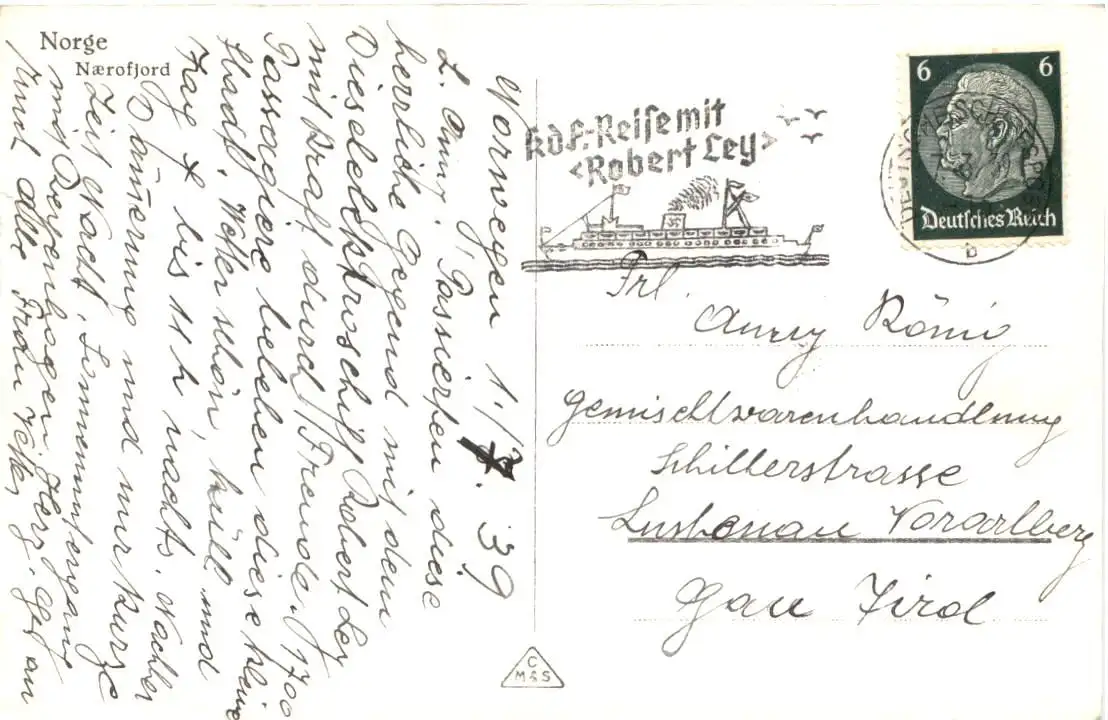 Norge
Nærofjord
Norwegen 1./7. 39
L. Anny! Passierten diese
herrliche Gegend mit dem
Dieselelektroschiff Robert Ley
mit Kraft durch Freude. 1700
Passagiere beleben diese kleine
Stadt. Wetter schön, kühl und
Tag bis 11 h nachts. Nachher
Dämmerung und nur kurze
Zeit Nacht. Sonnenuntergang
mit Herzl.
an
alle Frau
K.d.F.-Reise mit
<Robert Ley>
6 6
Deutsches Reich
b
Frl.
Anny König
Gemischtwarenhandlung
Schillerstrasse
Lustenau Vorarlberg
Gau Tirol
C
M&S